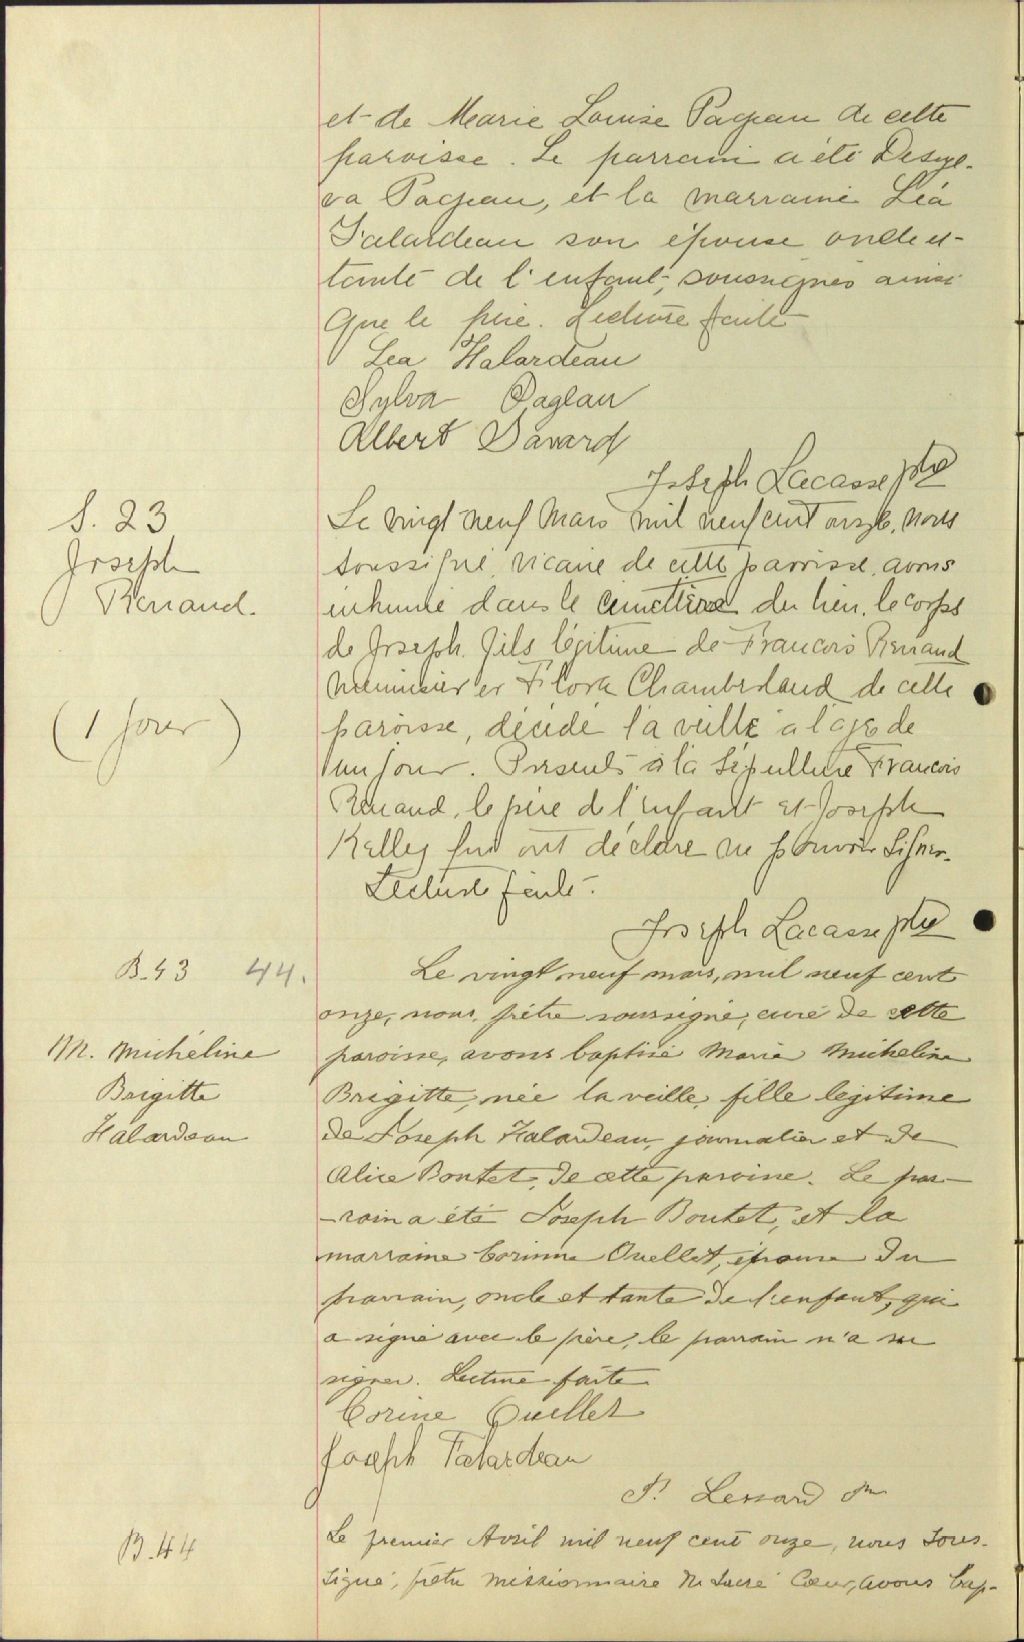 et de Marie Louise Pageau de cette
paroisse. Le parrain a été Desyl-
va Pageau, et la marraine Léa
Falardeau son épouse oncle et
tante de l'enfant, soussignés ainsi
que le père. Lecture faite
Lea Falardeau
Sylva Pageau
Albert Savard
Joseph Lacasse ptre
S. 23
Joseph
Renaud.
(1 jour)
Le vingt neuf Mars mil neuf cent onze, nous
soussigné, vicaire de cette paroisse, avons
inhumé dans le cimetière du lieu, le corps
de Joseph fils légitime de Francois Renaud
menuisier et Flora Chamberland de cette
paroisse, décédé la veille à l'age de
un jour. Presents à la sépulture Francois
Renaud, le père de l'enfant et Joseph
Kelley qui ont déclaré ne pouvoir signer.
Lecture faite.
Joseph Lacasse ptre
B-43 44.
M. Micheline
Brigitte
Falardeau
Le vingt neuf mars, mil neuf cent
onze, nous, prêtre soussigné, curé de cette
paroisse, avons baptisé Marie Micheline
Brigitte, née la veille, fille légitime
de Joseph Falardeau, journalier et de
Alice Boutet, de cette paroisse. Le par-
-rain a été Joseph Boutet, et la
marraine Corinne Ouellet, épouse du
parrain, oncle et tante de l'enfant, qui
a signé avec le père, le parrain n'a su
signer. Lecture faite
Corine Ouellet
Joseph Falardeau
P. Lessard
B-44
Le premier Avril mil neuf cent onze, nous sous-
signé, prêtre missionnaire du Sacré Coeur, avons bap-